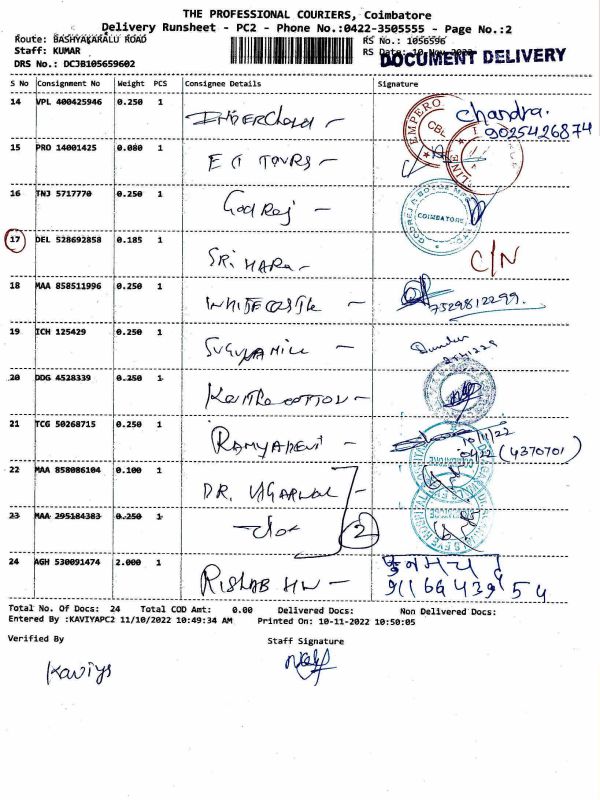 THE PROFESSIONAL COURIERS, Coimbatore
Delivery Runsheet - PC2 - Phone No.:0422-3505555 - Page No.:2
Route: BASHYAKARALU ROAD
RS No.: 1056596
Staff: KUMAR
RS Date: 10-Nov-2022
DOCUMENT DELIVERY
DRS No.: DCJB105659602
S No Consignment No Weight PCS Consignee Details Signature
14 VPL 400425946 0.250 1 chandra. 9025426874
15 PRO 14001425 0.080 1 E G TOURS -
16 TNJ 5717770 0.250 1 Godrej - COIMBATORE
17 DEL 528692858 0.185 1 SRI HARA - C/N
18 MAA 858511996 0.250 1 WHITE CASTLE - 7529812299.
19 ICH 125429 0.250 1
20 DDG 4528339 0.250 1
21 TCG 50268715 0.250 1 RAMYADEVI - 10/11/22 0422 (4370701)
22 MAA 858086104 0.100 1 DR. AGARWAL -
23 MAA 295184383 0.250 1 -do- 2
24 AGH 530091474 2.000 1 RISHAB HW -
Total No. Of Docs: 24 Total COD Amt: 0.00 Delivered Docs: Non Delivered Docs:
Entered By :KAVIYAPC2 11/10/2022 10:49:34 AM Printed On: 10-11-2022 10:50:05
Verified By Staff Signature
Kaviya